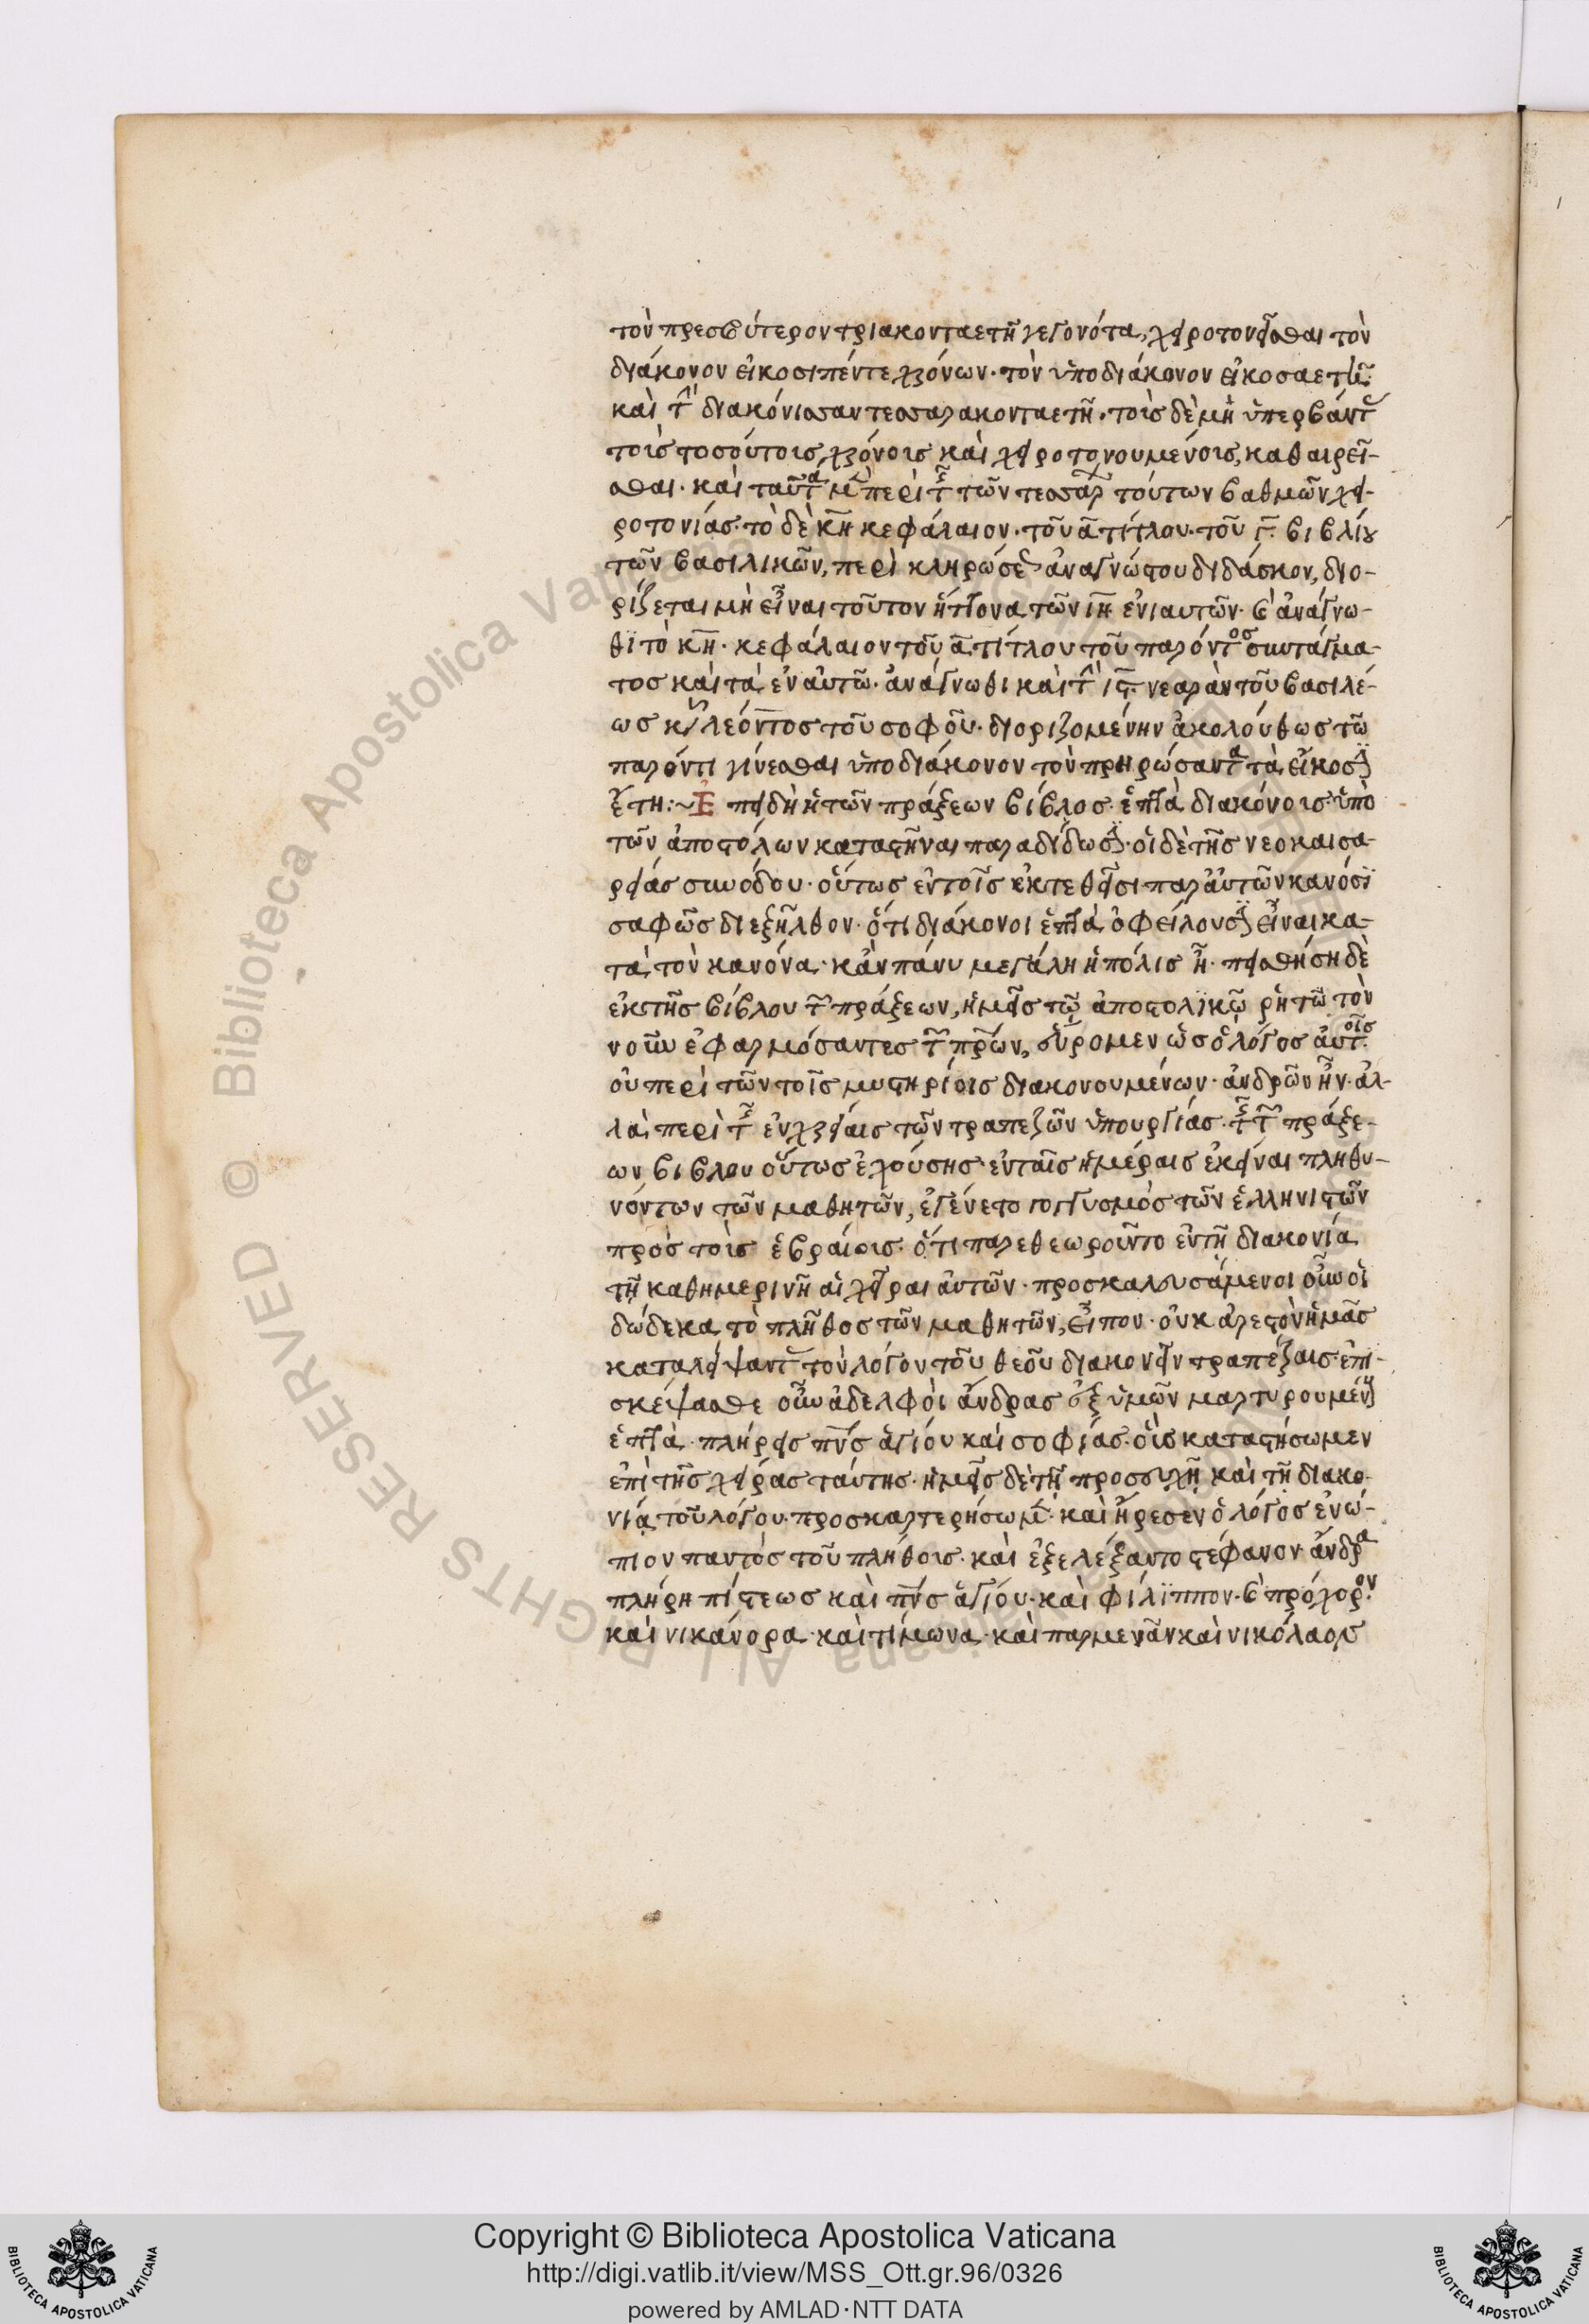 τὸν πρεσβύτερον τριακονταετῆ γεγονότα, χειροτονεῖσθαι τὸν
διάκονον εἰκοσιπέντε χρόνων· τὸν ὑποδιάκονον εἰκοσαετῆ·
καὶ τὴν διακόνισσαν τεσσαρακονταετῆ· τοὺς δὲ μὴ ὑπερβάντας
τοὺς τοσούτους χρόνους καὶ χειροτονουμένους, καθαιρεῖ-
σθαι· καὶ ταῦτα μὲν περὶ τῆς τῶν τεσσάρων τούτων βαθμῶν χει-
ροτονίας· τὸ δὲ κη κεφάλαιον· τοῦ α τίτλου· τοῦ γ· βιβλίου
τῶν βασιλικῶν, περὶ κληρώσεως ἀναγνώστου διδάσκον, διο-
ρίζεται μὴ εἶναι τοῦτον ἥττονα τῶν ιη ἐνιαυτῶν· καὶ ἀνάγνω-
θι τὸ κη· κεφάλαιον τοῦ α τίτλου τοῦ παρόντος συντάγμα-
τος καὶ τὰ ἐν αὐτῶ· ἀνάγνωθι καὶ τὴν ις· νεαρὰν τοῦ βασιλέ-
ως κυροῦ λέοντος τοῦ σοφοῦ· διοριζομένην ἀκολούθως τῶ
παρόντι γίνεσθαι ὑποδιάκονον τὸν πληρώσαντα τὰ εἴκοσι
ἔτη:~ Ἐπειδὴ ἡ τῶν πράξεων βίβλος· ἑπτὰ διακόνους ὑπὸ
τῶν ἀποστόλων καταστῆναι παραδίδωσι· οἱ δὲ τῆς νεοκαισα-
ρείας συνόδου· οὕτως ἐν τοῖς ἐκτεθεῖσι παρ' αὐτῶν κανόσι
σαφῶς διεξῆλθον· ὅτι διάκονοι ἑπτὰ ὀφείλουσι εἶναι κα-
τὰ τὸν κανόνα· κἂν πάνυ μεγάλη ἡ πόλις ἦ· πεισθήση δὲ
ἐκ τῆς βίβλου τῶν πράξεων, ἡμεῖς τῶ ἀποστολικῶ ῥητῶ τὸν
νοῦν ἐφαρμόσαντες τῶν πρων, εὕρομεν ὡς ὁ λόγος αὐτοῖς
οὐ περὶ τῶν τοῖς μυστηρίοις διακονουμένων· ἀνδρῶν ἦν· ἀλ-
λὰ περὶ τῆς ἐν χρείαις τῶν τραπεζῶν ὑπουργίας· τῆς τῶν πράξε-
ων βίβλου οὕτως ἐχούσης· ἐν ταῖς ἡμέραις ἐκείναις πληθυ-
νόντων τῶν μαθητῶν, ἐγένετο γογγυσμὸς τῶν ἑλληνιστῶν
πρὸς τοὺς ἑβραίους· ὅτι παρεθεωροῦντο ἐν τῆ διακονία
τῆ καθημερινῆ αἱ χῆραι αὐτῶν· προσκαλουσάμενοι οὖν οἱ
δώδεκα τὸ πλῆθος τῶν μαθητῶν, εἶπον· οὐκ ἀρεστὸν ἡμᾶς
καταλείψαντας τὸν λόγον τοῦ θεοῦ διακονεῖν τραπέζαις· ἐπι-
σκέψασθε οὖν ἀδελφοὶ ἄνδρας ἐξ ὑμῶν μαρτυρουμένους
ἑπτὰ· πλήρεις πνς ἁγίου καὶ σοφίας· οὓς καταστήσωμεν
ἐπὶ τῆς χρείας ταύτης· ἡμεῖς δὲ τῆ προσευχῆ καὶ τῆ διακο-
νία τοῦ λόγου· προσκαρτερήσωμεν· καὶ ἤρεσεν ὁ λόγος ἐνώ-
πιον παντὸς τοῦ πλήθους· καὶ ἐξελέξαντο στέφανον· ἄνδρα
πλήρη πίστεως καὶ πνς ἁγίου· καὶ φίλιππον· καὶ πρόχορον·
καὶ νικάνορα· καὶ τίμωνα· καὶ παρμενᾶν καὶ νικόλαον
Copyright © Biblioteca Apostolica Vaticana
http://digi.vatlib.it/view/MSS_Ott.gr.96/0326
powered by AMLAD·NTT DATA
BIBLIOTECA APOSTOLICA VATICANA
BIBLIOTECA APOSTOLICA VATICANA